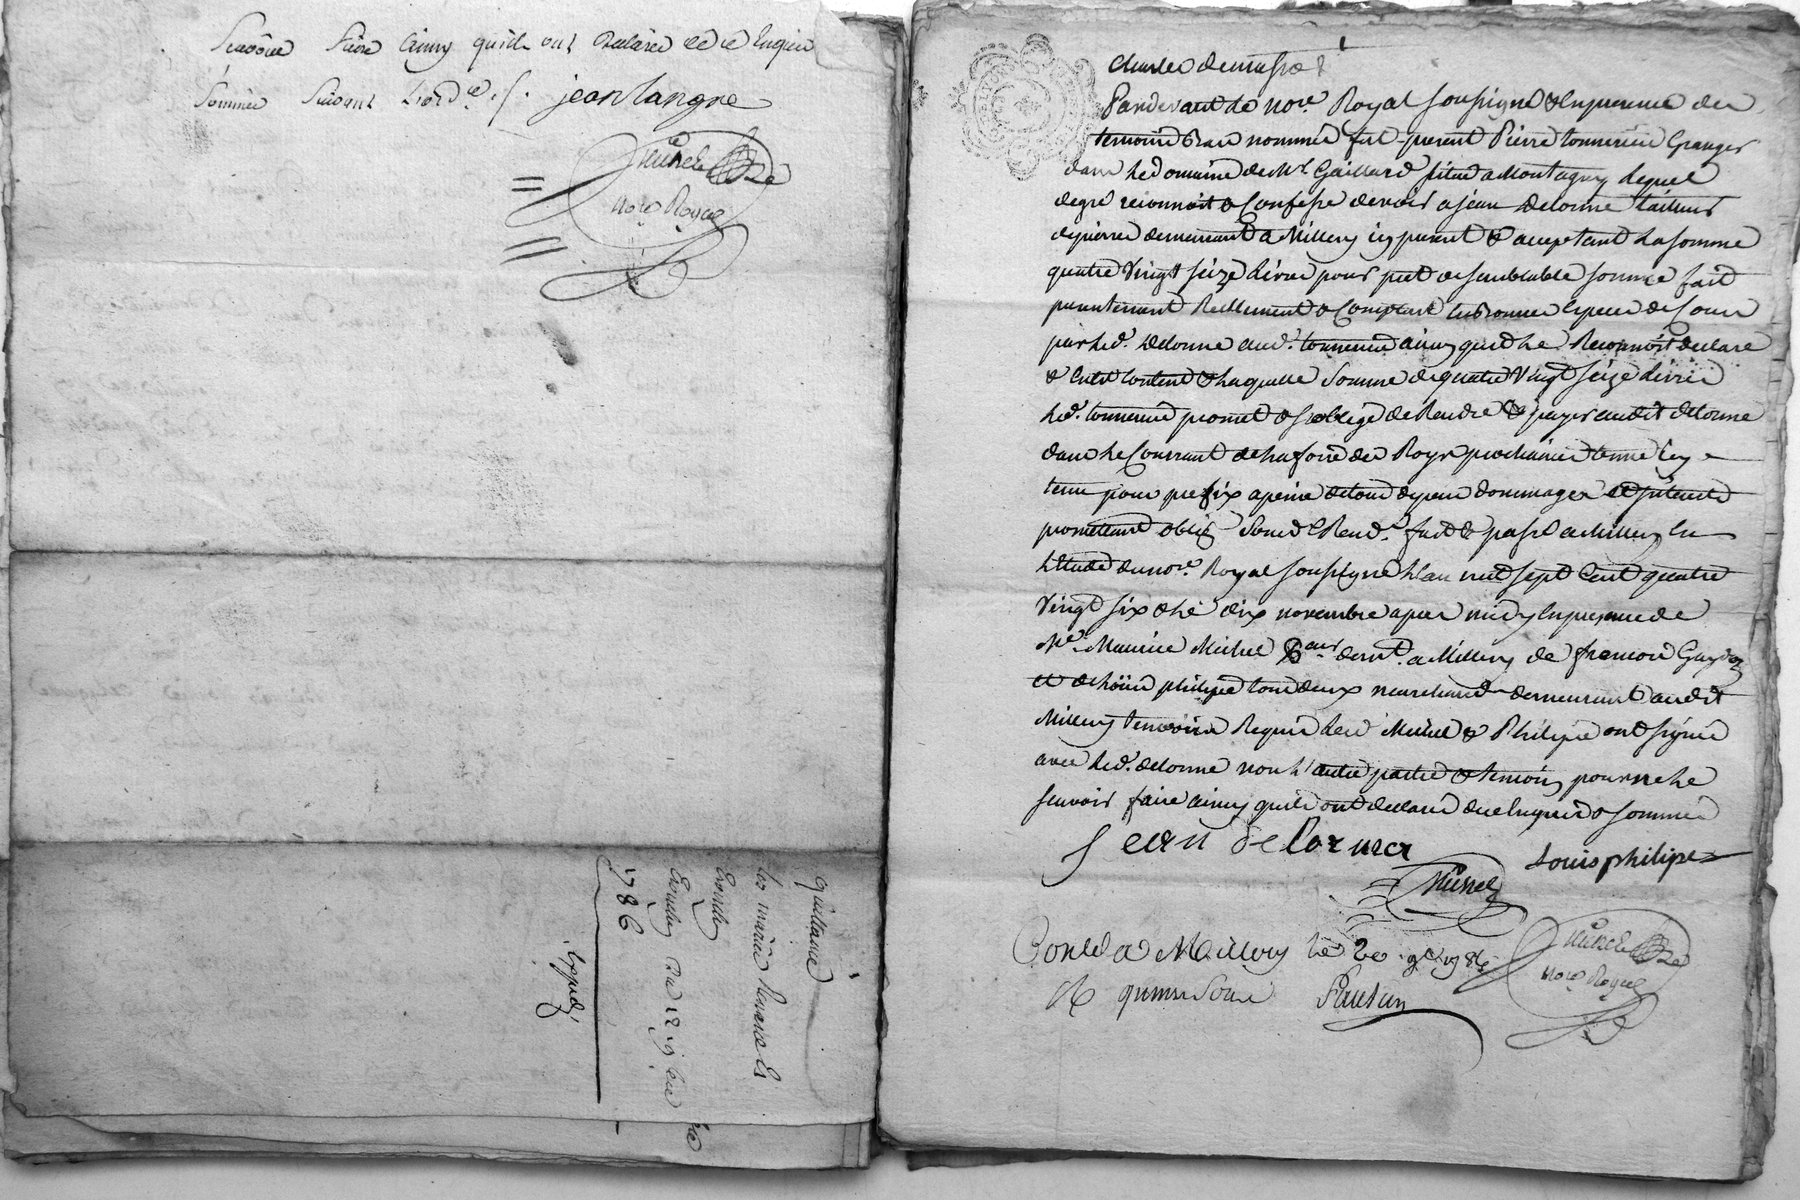 scavoir faire ainsy quils ont déclaré de ce Enquis
sommés suivant l'ord.ce ./. jean langne
Michel
No.re Royal
quittance
les mariés
1786
Expedy
Pardevant le no.re Royal soussigné & En presence des
temoins bas nommés fut present Pierre tonnerieu Granger
dans le Domaine de Mr Gaillard situé a Montagny lequel
de gré reconnoit & Confesse devoir a jean delorme tailleur
de pierre demeurant a Millery icy present & acceptant la somme
quatre Vingt seize livres pour pret de semblable somme fait
presentement Reellement & Comptant en bonnes Especes de Cours
par led. delorme aud. tonnerieu ainsy quil le Reconnoit declare
& s'en Contente & laquelle Somme de quatre Vingt seize livres
led. tonnerieu promet & s'oblige de Rendre & payer audit delorme
dans le Courrant de la foire des Roys prochaines terme Ey
tenu pour prefix a peine de tous depens dommages et interets
promettant oblig. Soum. & Ren. fait & passé a Millery En
l'Etude du no.re Royal soussigné L'an mil sept Cent quatre
Vingt six & le dix novembre apres midy En presence de
Me Maurice Michel dem.t a Millery de francois Guyot
et de Louis philipe tous deux demeurant audit
Millery temoins Requis led. Michel & Philipe ont signé
avec led. delorme non l'autre partie & temoins pour ne le
scavoir faire ainsy quils ont declaré de ce Enquis & sommés
Jean delorme
Louis philipe
Michel
Con.lé a Millery le 20 9bre 1786
R quinze Sous
Michel
No.re Royal